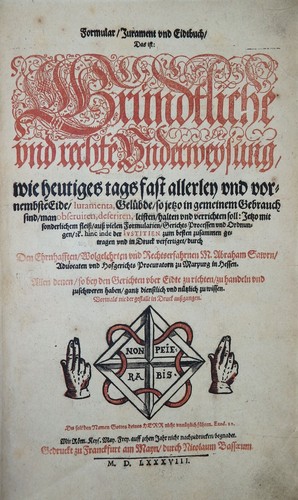 Formular/ Jurament vnd Eidtbuch/
Das ist:
Gründtliche
vnd rechte Vnderweysung/
wie heutiges tags fast allerley vnd vor-
nembste Eide/ Iuramenta, Gelübde/ so jetzo in gemeinem Gebrauch
sind/ man obseruiren, deferiren, leisten/ halten vnd verrichten soll: Jetzo mit
sonderlichem fleiß/ auß vielen Formularien/ Gerichts Processen vnd Ordnun-
gen/ ꝛc. hinc inde der IVSTITIEN zum besten zusammen ge-
tragen vnd in Druck verfertiget/ durch
Den Ehrnhafften/ Wolgelehrten vnd Rechtserfahrnen M. Abraham Sawrn/
Aduocaten vnd Hofgerichts Procuratorn zu Marpurg in Hessen.
Allen denen/ so bey den Gerichten vber Eidte zu richten/ zu handeln vnd
zuschweren haben/ gantz dienstlich vnd nützlich zu wissen.
Vormals nie der gestallt in Druck außgangen.
NON PEIE-
RA BIS.
Du solt den Namen Gottes deines HERR nicht
Mit Röm. Keys. May. Frey. auff zehen Jahr nicht nachzudrucken begnadet.
Gedruckt zu Franckfurt am Mayn/ durch Nicolaum Bassæum
M. D. LXXXVIII.